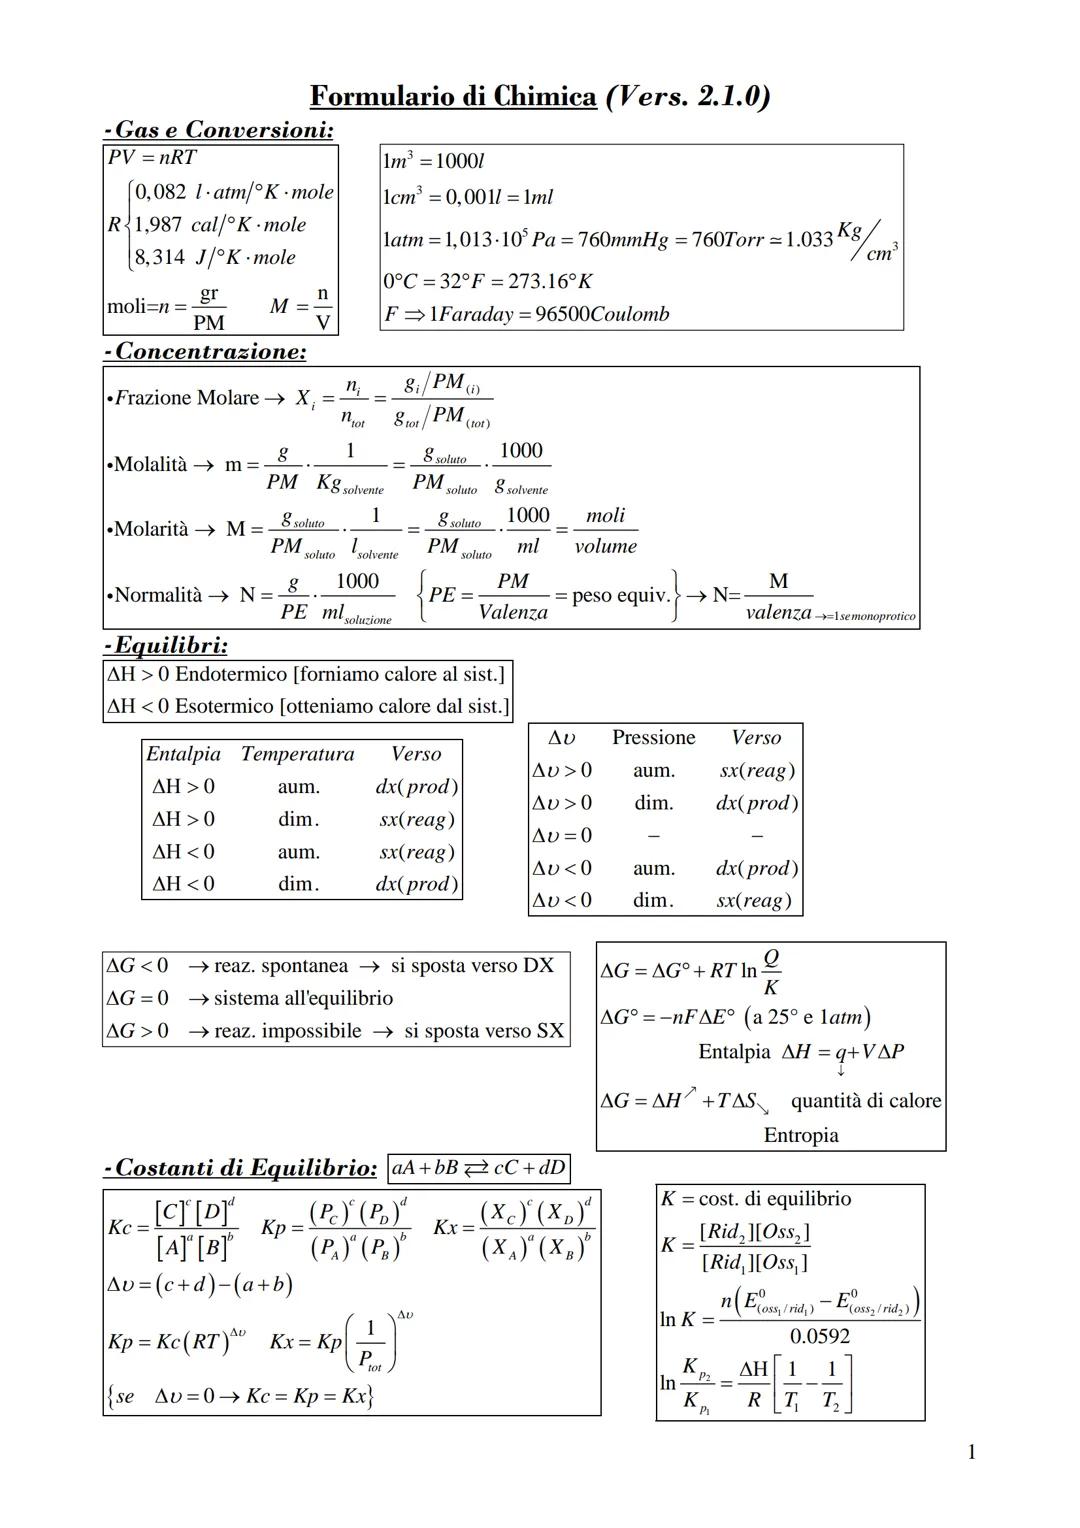 Formulario di Chimica (Vers. 2.1.0)
-Gas e Conversioni:
PV = nRT
R { 0,082 l·atm/°K·mole
1,987 cal/°K·mole
8,314 J/°K·mole
moli=n = gr/PM   M = n/V
1m³ = 1000l
1cm³ = 0,001l = 1ml
1atm = 1,013·10⁵ Pa = 760mmHg = 760Torr ≃ 1.033 Kg/cm³
0°C = 32°F = 273.16°K
F ⇒ 1Faraday = 96500Coulomb
-Concentrazione:
•Frazione Molare → X_i = n_i/n_tot = (g_i/PM_(i))/(g_tot/PM_(tot))
•Molalità → m = g/PM · 1/Kg_solvente = g_soluto/PM_soluto · 1000/g_solvente
•Molarità → M = g_soluto/PM_soluto · 1/l_solvente = g_soluto/PM_soluto · 1000/ml = moli/volume
•Normalità → N = g/PE · 1000/ml_soluzione {PE = PM/Valenza = peso equiv.} → N= M/valenza →=1 se monoprotico
-Equilibri:
ΔH > 0 Endotermico [forniamo calore al sist.]
ΔH < 0 Esotermico [otteniamo calore dal sist.]
Entalpia Temperatura Verso
ΔH > 0 aum. dx(prod)
ΔH > 0 dim. sx(reag)
ΔH < 0 aum. sx(reag)
ΔH < 0 dim. dx(prod)
Δυ Pressione Verso
Δυ > 0 aum. sx(reag)
Δυ > 0 dim. dx(prod)
Δυ = 0 – –
Δυ < 0 aum. dx(prod)
Δυ < 0 dim. sx(reag)
ΔG < 0 → reaz. spontanea → si sposta verso DX
ΔG = 0 → sistema all'equilibrio
ΔG > 0 → reaz. impossibile → si sposta verso SX
ΔG = ΔG° + RT ln Q/K
ΔG° = −nFΔE° (a 25° e 1atm)
Entalpia ΔH = q+VΔP
↓
ΔG = ΔH↗ + TΔS↘ quantità di calore
Entropia
-Costanti di Equilibrio: aA + bB ⇄ cC + dD
Kc = [C]^c [D]^d / [A]^a [B]^b   Kp = (P_C)^c (P_D)^d / (P_A)^a (P_B)^b   Kx = (X_C)^c (X_D)^d / (X_A)^a (X_B)^b
Δυ = (c + d) − (a + b)
Kp = Kc(RT)^Δυ   Kx = Kp(1/P_tot)^Δυ
{se Δυ = 0 → Kc = Kp = Kx}
K = cost. di equilibrio
K = [Rid₂][Oss₂] / [Rid₁][Oss₁]
ln K = n(E⁰_(oss₁/rid₁) − E⁰_(oss₂/rid₂)) / 0.0592
ln K_p₂/K_p₁ = ΔH/R [1/T₁ − 1/T₂]
1